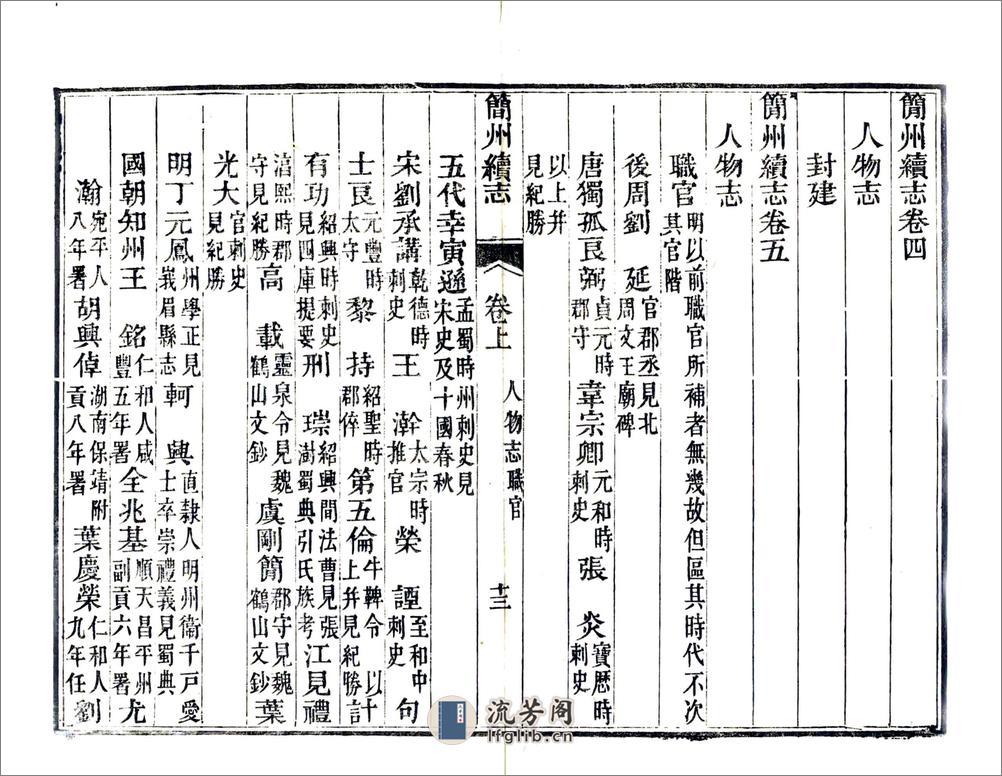 簡州續志卷四
人物志
封建
簡州續志卷五
人物志
職官明以前職官所補者無幾故但區其時代不次
其官階
後周劉 延官郡丞見北
周文王廟碑
唐獨孤良弼貞元時
郡守韋宗卿元和時
刺史張 炎寶歷時
刺史
以上幷
見紀勝
簡州續志 卷上 人物志職官 十三
五代幸寅遜孟蜀時州刺史見
宋史及十國春秋
宋劉承講乾德時
刺史王 澣太宗時
推官榮 諲至和中
刺史句
士良元豐時
太守黎 持紹聖時
郡倅第五倫牛鞞令 以
上幷見紀勝計
有功紹興時刺史
見四庫提要刑 崇紹興間法曹見張
澍蜀典引氏族考江見禮
淳熙時郡
守見紀勝高 載靈泉令見魏
鶴山文鈔虞剛簡郡守見魏
鶴山文鈔葉
光大官刺史
見紀勝
明丁元鳳州學正見
峩眉縣志軻 興直隸人明州衛千戸愛
士卒崇禮義見蜀典
國朝知州王 銘仁和人咸
豐五年署全兆基順天昌平州
副貢六年署尤
瀚宛平人
八年署胡興倬湖南保靖附
貢八年署葉慶榮仁和人
九年任劉
流芳阁
lfglib.cn